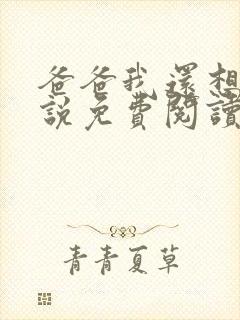 爸爸我還想
說免費閱讀
青青夏草